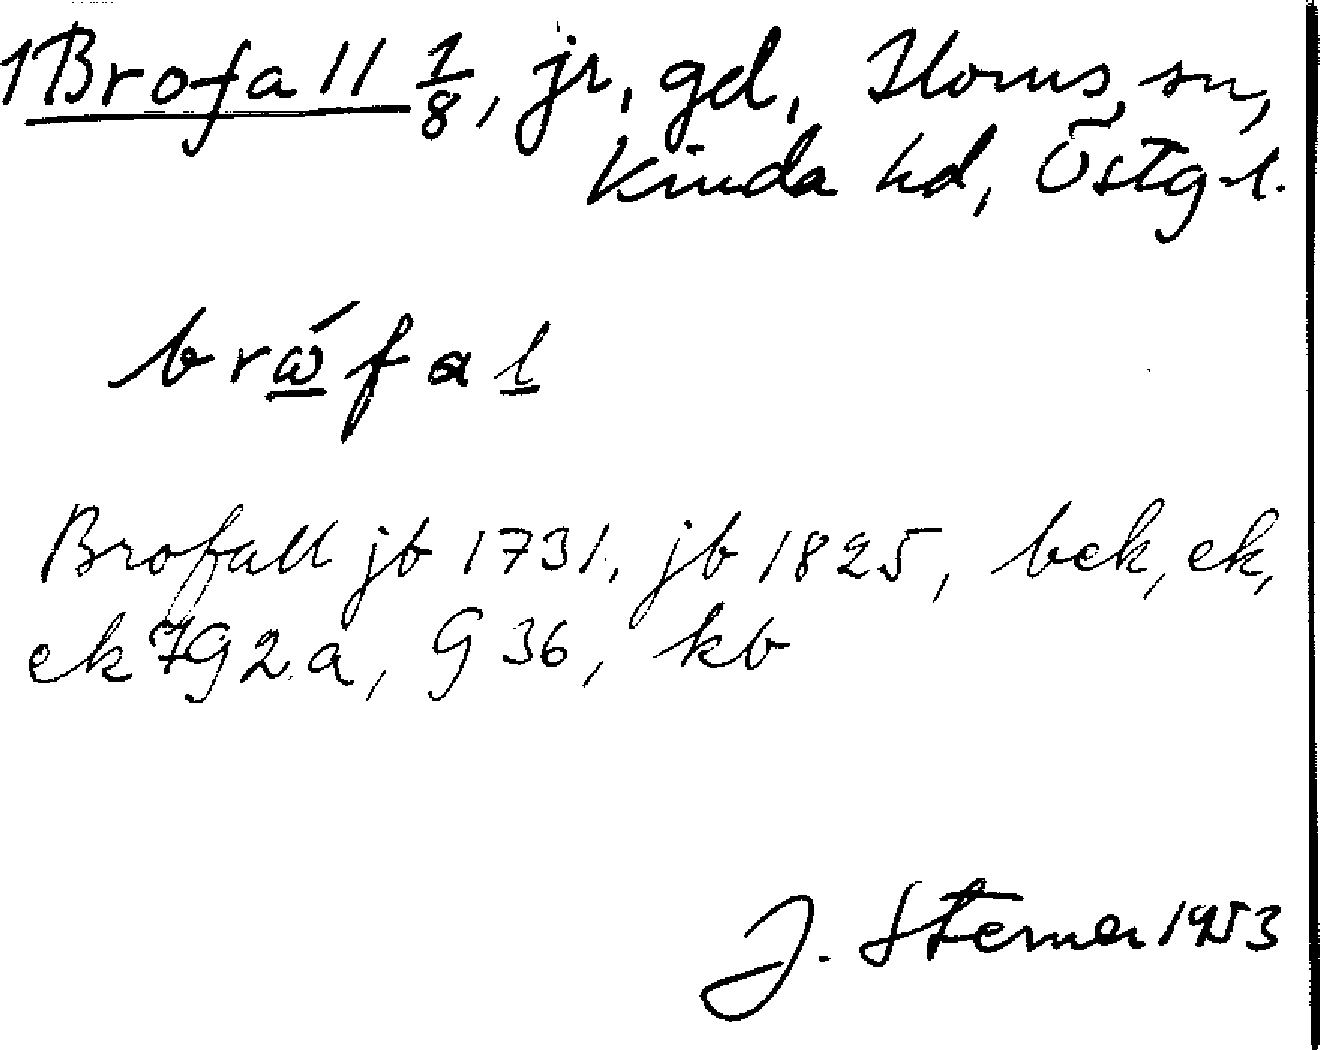 1 Brofall 1/8, jr, gd, Horns sn,
Kinda hd, Östg. l.
brώfal
Brofall jb 1731, jb 1825, bek, ek,
ek 792 a, G 36, kb
J. Sterner 1953